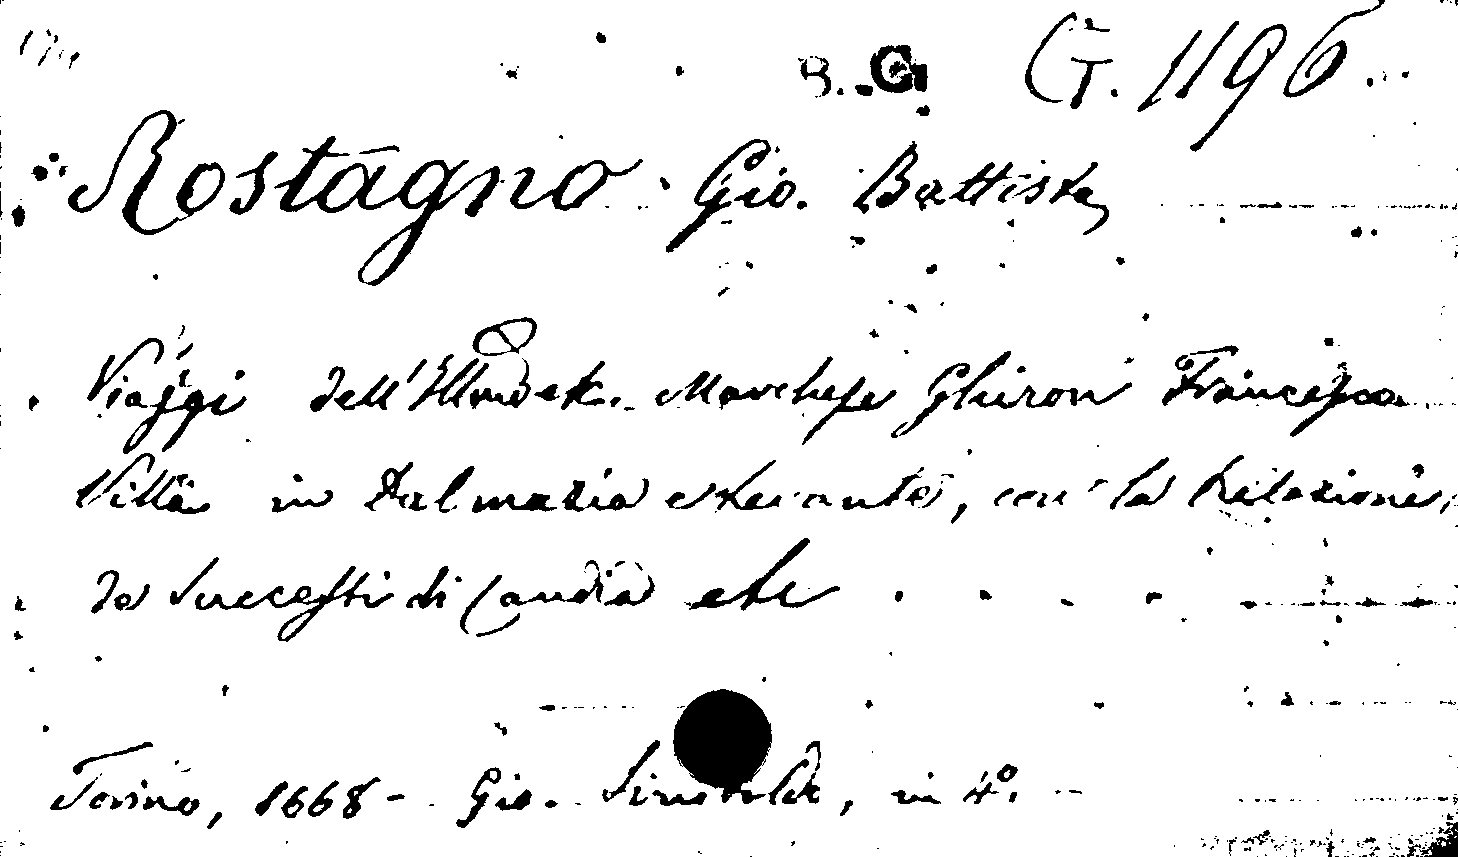 B. G. G. 1196
Rostagno Gio. Battista
Viaggi dell' Marchese Ghiron Francesco
Villa in Dalmazia e Levante, con la Relazione,
de Successi di Candia etc
Torino, 1668 - Gio. Sinibaldo, in 4º.